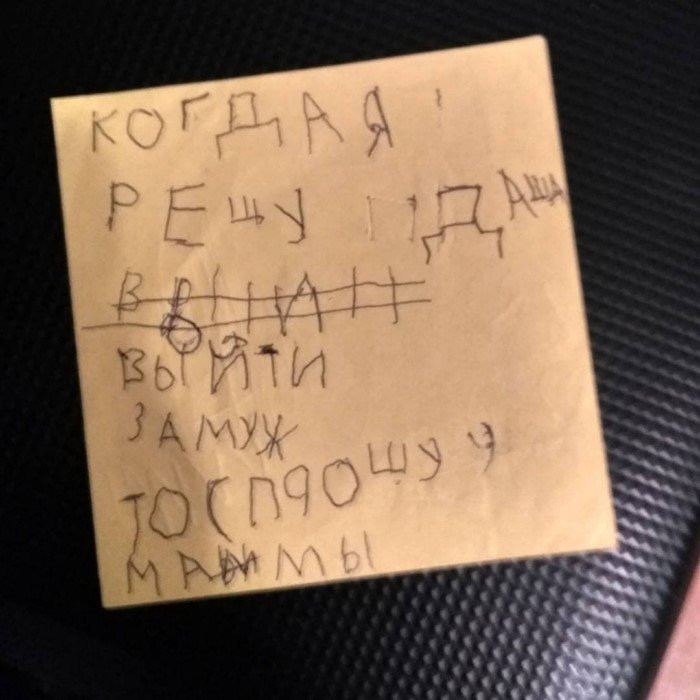 КОГДА Я
РЕШУ ДАША
ВЫЙТИ
ЗАМУЖ
ТО СПРОШУ У
МАМЫ